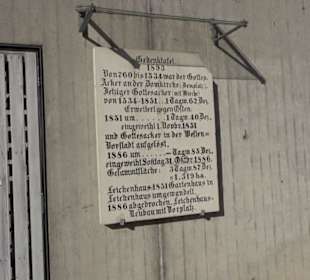 Gedenktafel
1893
Von 760 bis 1534 war der Gottes-
Acker an der Domkirche
Jetziger Gottesacker mit Kirche
von 1534-1851. 1 Tagw. 62 Dez.
Erweitert gegen Osten.
1851 um...... 1 Tagw. 40 Dez.
eingeweiht 1. Novbr. 1851
und Gottesacker in der Westen-
Vorstadt aufgelöst.
1886 um...... — Tagw. 85 Dez.
eingeweiht Sonntag 31. Octbr. 1886.
Gesammtfläche: 3 Tagw. 87 Dez.
= 1.319 ha.
Leichenhaus 1851 Gartenhaus in
Leichenhaus umgewandelt.
1886 abgebrochen, Leichenhaus-
Neubau mit Vorplatz.